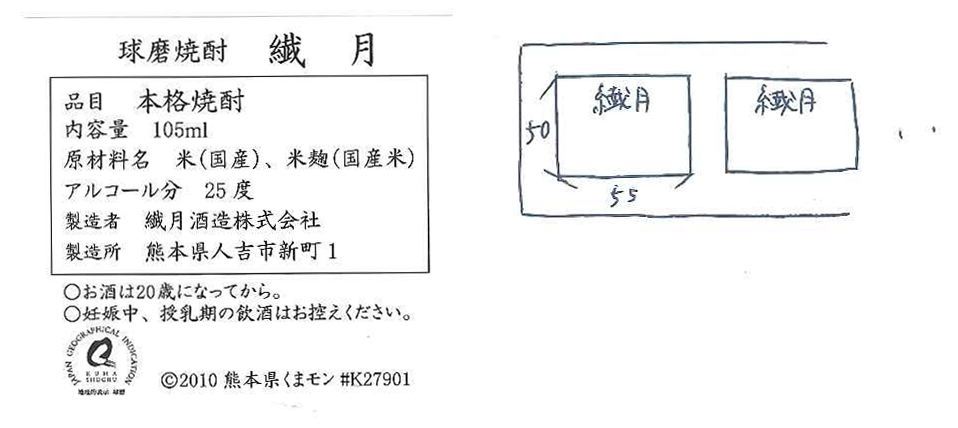 球磨焼酎 繊月
品目 本格焼酎
内容量 105ml
原材料名 米(国産)、米麹(国産米)
アルコール分 25度
製造者 繊月酒造株式会社
製造所 熊本県人吉市新町1
○お酒は20歳になってから。
○妊娠中、授乳期の飲酒はお控えください。
JAPAN GEOGRAPHICAL INDICATION
KUMA
SHOCHU
地理的表示 球磨
©2010 熊本県くまモン #K27901
繊月
繊月
50
55